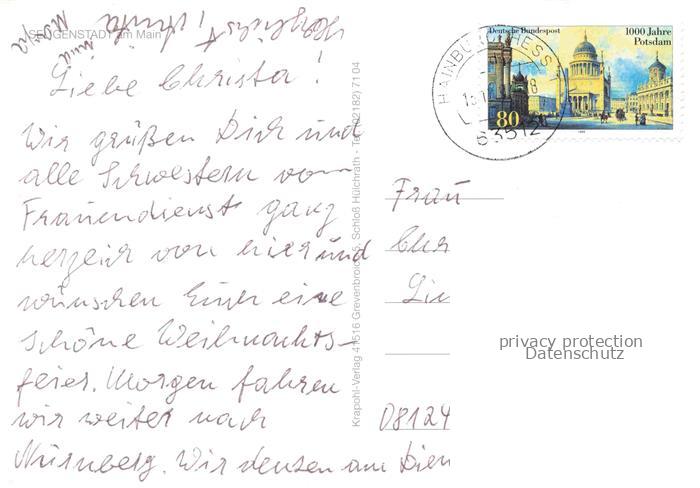 SELIGENSTADT am Main
Liebe Christa!
Wir grüßen Dich und
alle Schwestern vom
Frauendienst ganz
herzlich von hier und
wünschen Euch eine
schöne Weihnachts-
feier. Morgen fahren
wir weiter nach
Nürnberg. Wir denken am Dien
Krapohl-Verlag 41516 Grevenbroich 5, Schloß Hülchrath - Tel. (02182) 71 04
Deutsche Bundespost
1000 Jahre
Potsdam
80
HAINBURG, HESS
63512
Frau
Chr
Lie
08124
privacy protection
Datenschutz